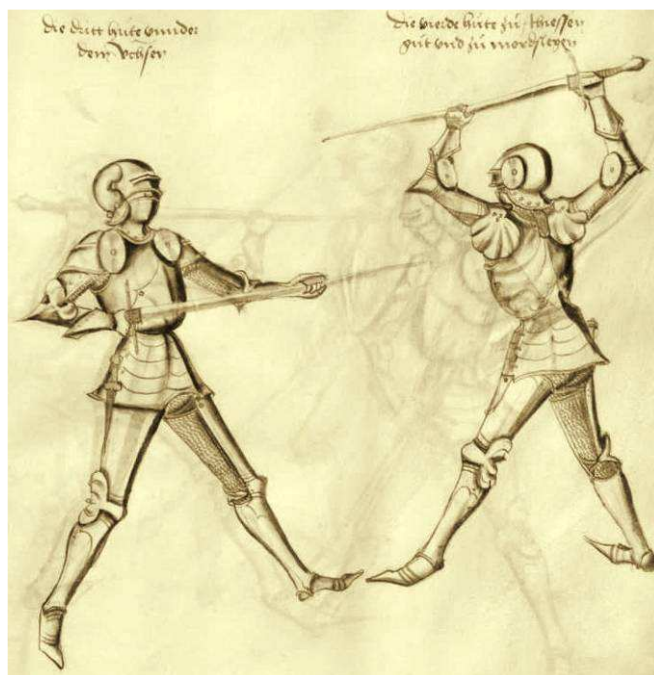 die dritt hüte vnnder
dem Vchsen
die vierde hüte zü schiessen
güt vnd zü mordslegen